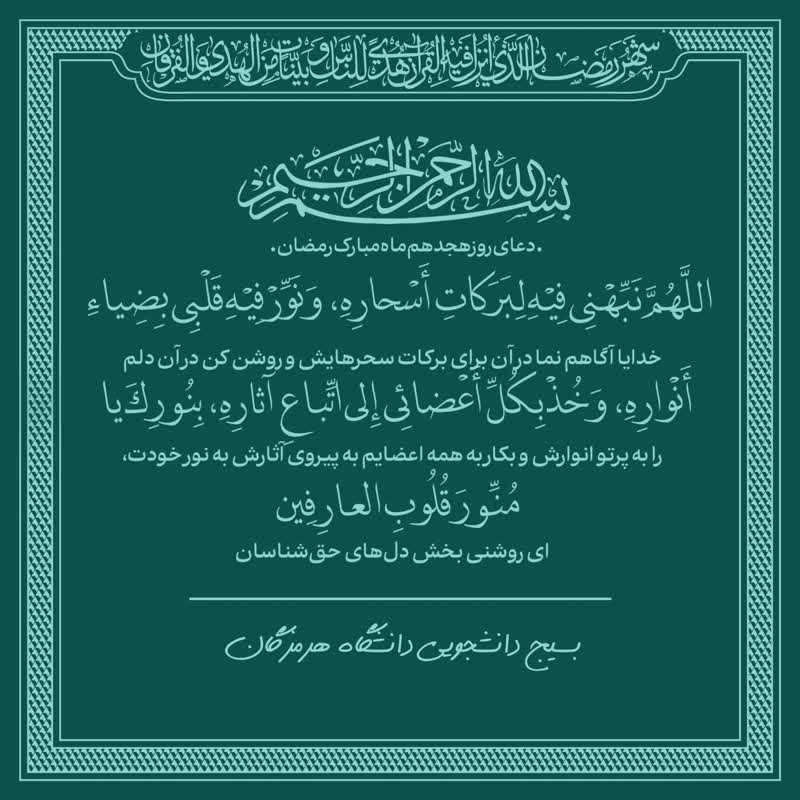 شَهْرُ رَمَضانَ الَّذي أُنْزِلَ فيهِ القُرآنُ هُدًى لِلنّاسِ وَ بَيِّناتٍ مِنَ الهُدى وَ الفُرقانِ
بِسْمِ اللهِ الرَّحْمنِ الرَّحيمِ
.دعای روز هجدهم ماه مبارک رمضان.
اللَّهُمَّ نَبِّهْنِی فِیهِ لِبَرَکاتِ أَسْحارِهِ، وَ نَوِّرْ فِیهِ قَلْبِی بِضِیاءِ
خدایا آگاهم نما در آن برای برکات سحرهایش و روشن کن در آن دلم
أَنْوارِهِ، وَ خُذْ بِکُلِّ أَعْضائِی إِلی اتِّباعِ آثارِهِ، بِنُورِكَ یا
را به پرتو انوارش و بکار به همه اعضایم به پیروی آثارش به نور خودت،
مُنَوِّرَ قُلُوبِ العارِفِین
ای روشنی بخش دل‌های حق‌شناسان
بسیج دانشجویی دانشگاه هرمزگان